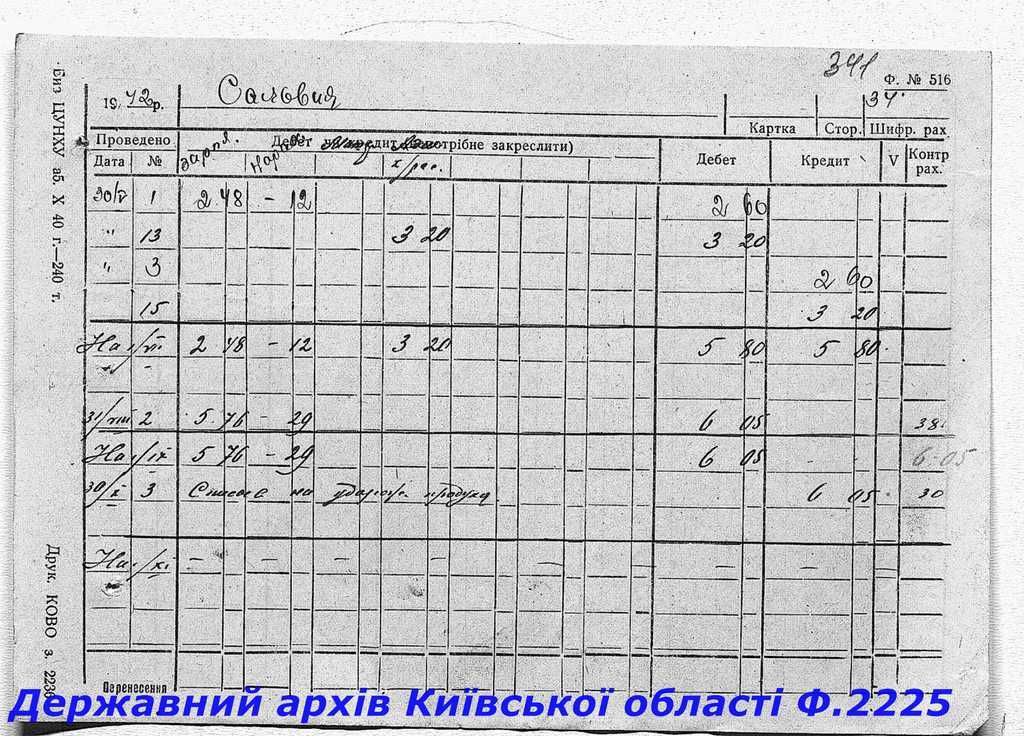 341
Ф. № 516
1942р. Саловия
34.
Картка Стор. Шифр. рах
Проведено Дебет кредит (непотрібне закреслити)
Дата № Зарпл. Нарах. х/рас. Дебет Кредит V Контр рах.
30/V 1 2 48 - 12 2 60
" 13 3 20 3 20
" 3 2 60
15 3 20
На 1/VI 2 48 - 12 3 20 5 80 5 80
31/VIII 2 5 76 - 29 6 05 38
На 1/IX 5 76 - 29 6 05 - - 6-05
30/X 3 на 6 05 30
На 1/XI - - - - - - - - -
Перенесення
Биз ЦУНХУ аб. X 40 г.—240 т.
Друк. КОВО з. 2236
Державний архів Київської області Ф.2225